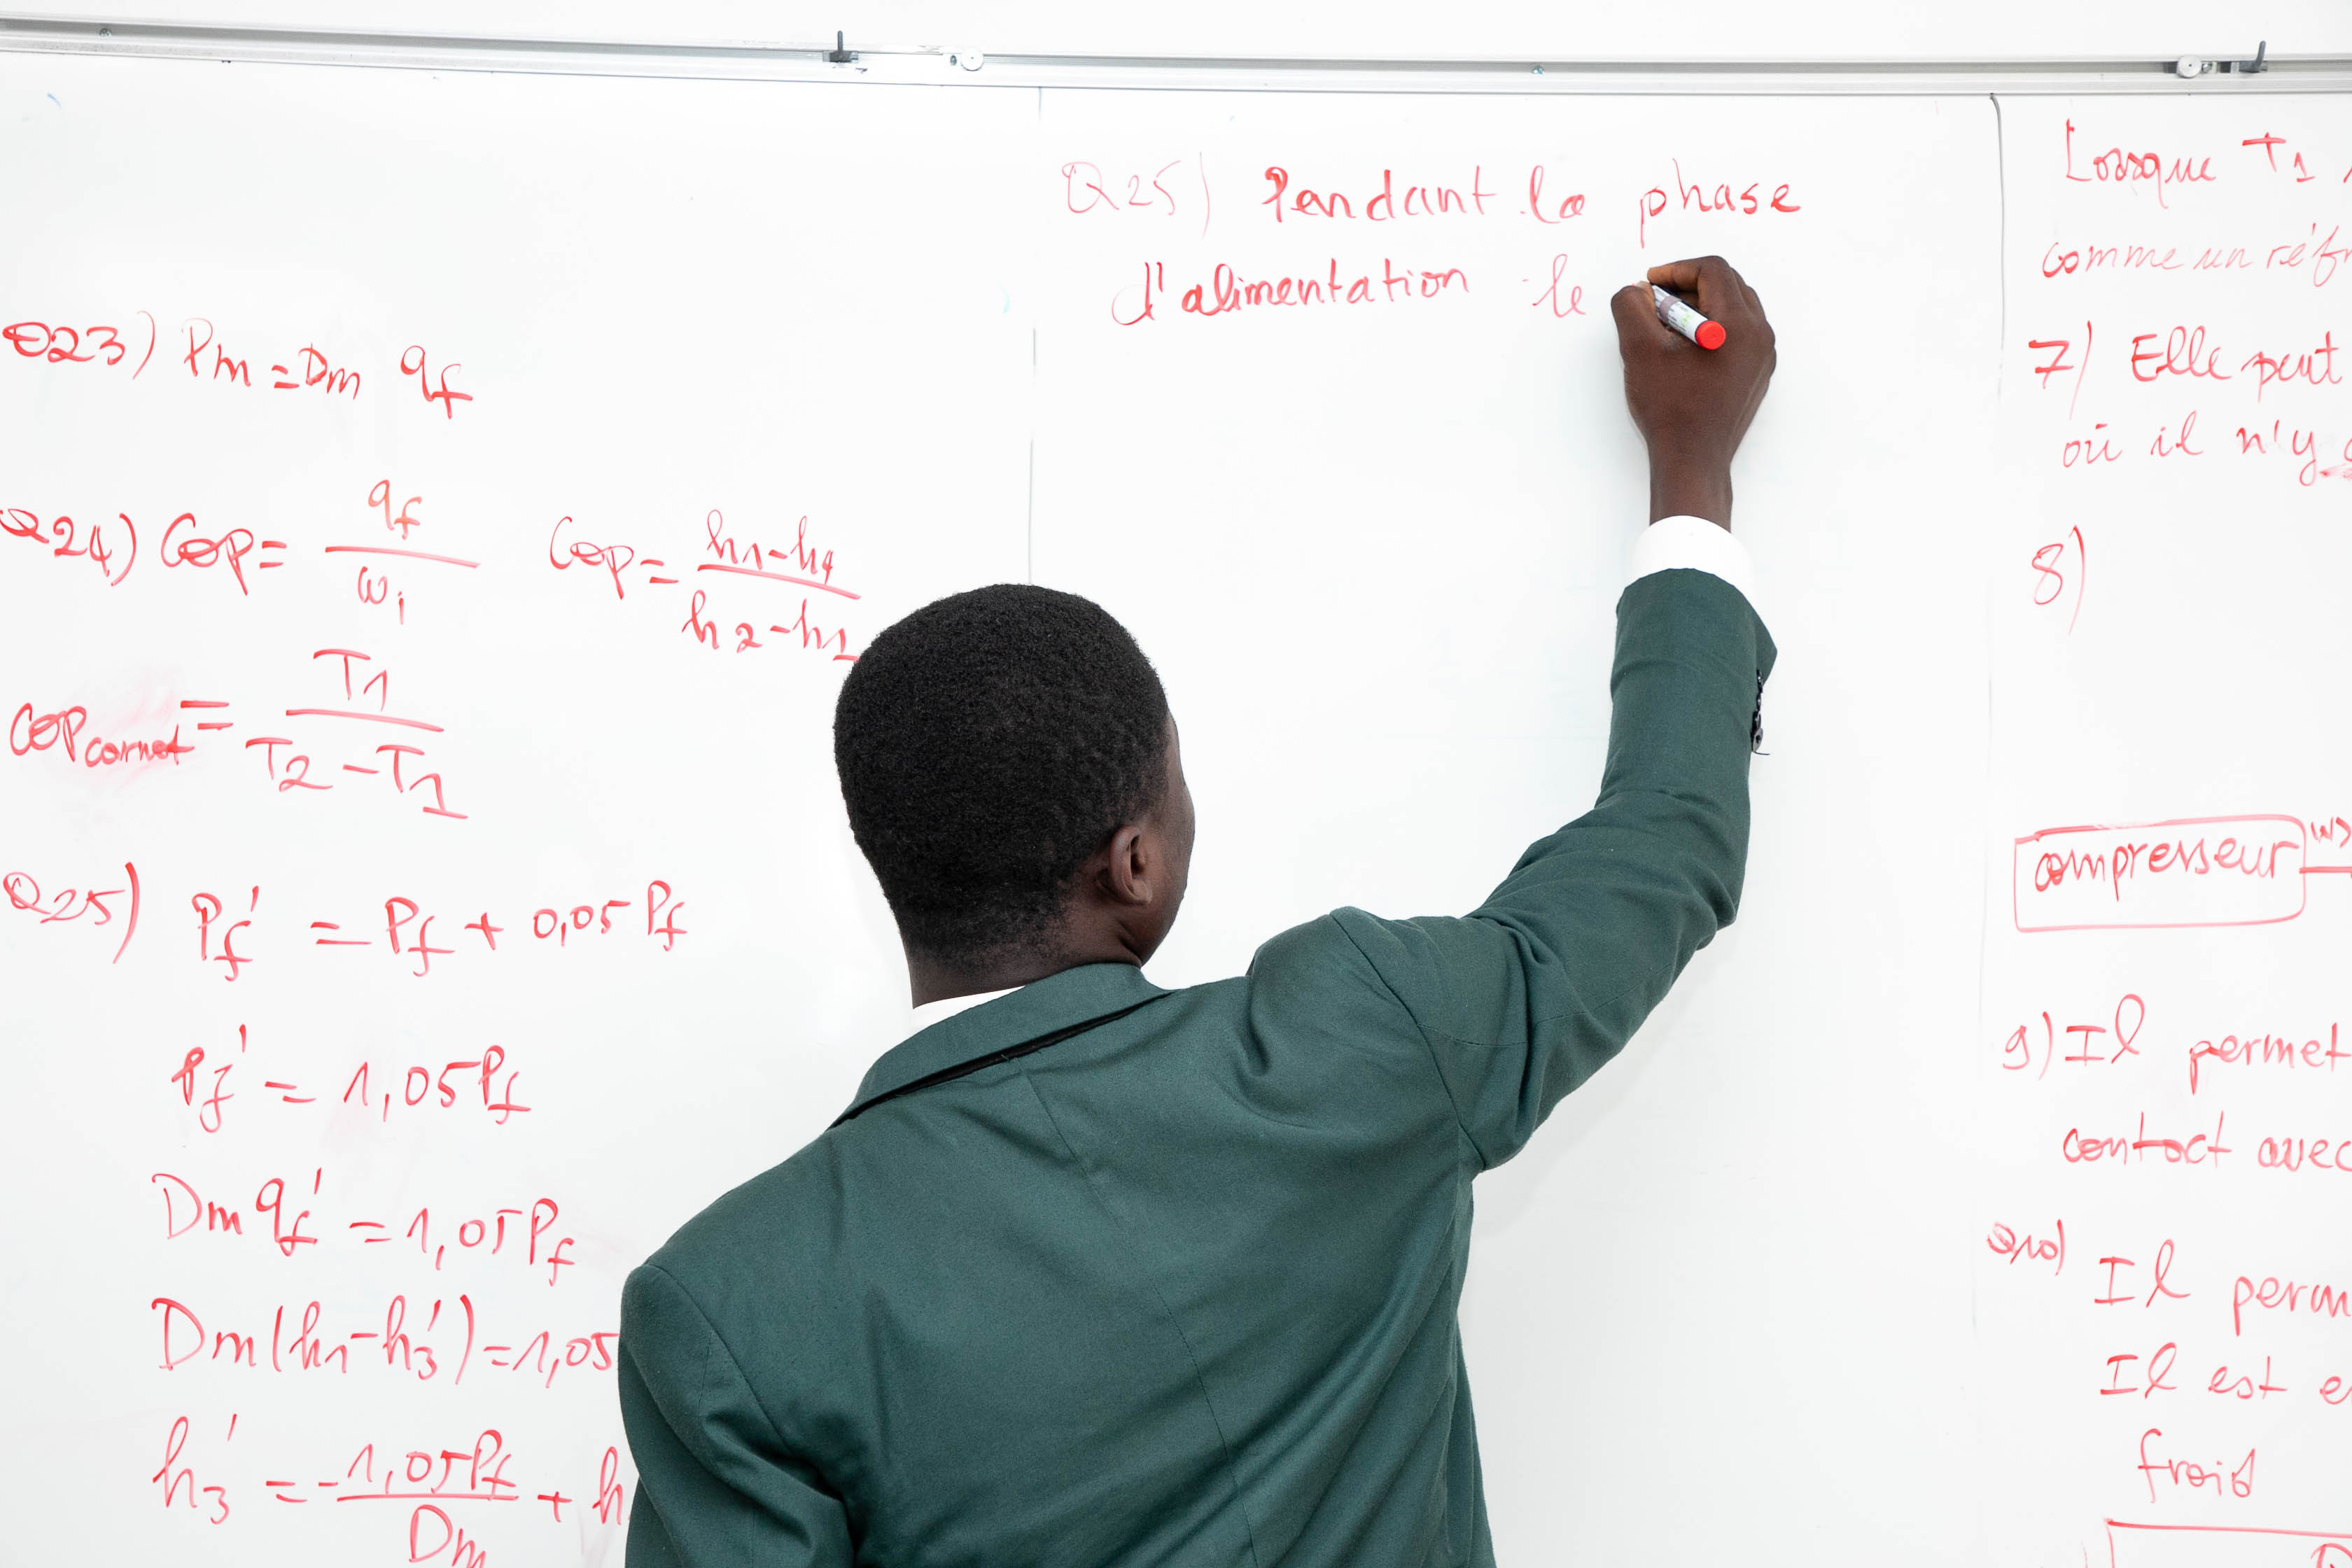 Q23) Pm = Dm qf
Q24) Cop = qf / wi Cop = h1-h4 / h2-h1
COP carnot = T1 / T2 - T1
Q25) Pf' = Pf + 0,05 Pf
Pf' = 1,05 Pf
Dm qf' = 1,05 Pf
Dm(h1-h3') = 1,05
h3' = -1,05 Pf / Dm + h
Q25) Pendant la phase
d'alimentation le
Lorsque T1
comme un réfr
7) Elle peut
où il n'y
8)
compresseur w
9) Il permet
contact avec
Q10) Il perm
Il est e
froid